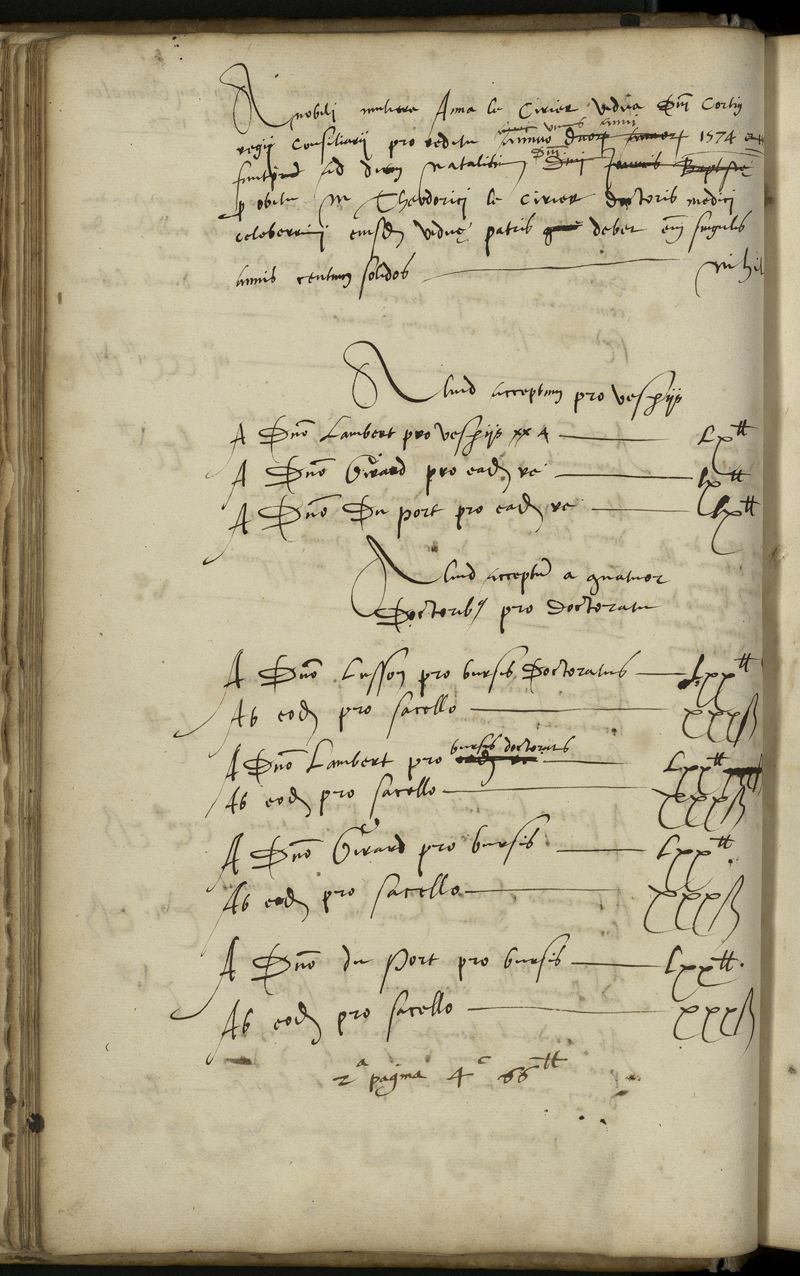 A nobili muliere Anna le Cirier vidua Dni Cortin
regii consiliarii pro reditu annuo unius anni duorum annorum 1574 et
ad diem natalitium Dni Dni Joannis Baptiste
p obitu M Theodorici le Cirier doctoris medici
celeberrimi eiusd viduę patris debet em singulis
annis centum solidos nihil
Aliud acceptum pro vesperiis
A Dno Lambert pro vesperiis xx 4 Lx tt
A Dno Girard pro eadem re Lx tt
A Dno Du Port pro eadem re Lx tt
Aliud acceptum a quatuor
Doctoribus pro doctoratu
A Dno Lusson pro bursis Doctoratus Lxx tt
Ab eodem pro sacello xxx ß
A Dno Lambert pro bursis doctoratus eadem re Lxx tt
Ab eodem pro sacello xxx ß
A Dno Girard pro bursis Lxx tt
Ab eodem pro sacello xxx ß
A Dno du Port pro bursis Lxx tt.
Ab eodem pro sacello xxx ß
2a pagina 4c 66 tt